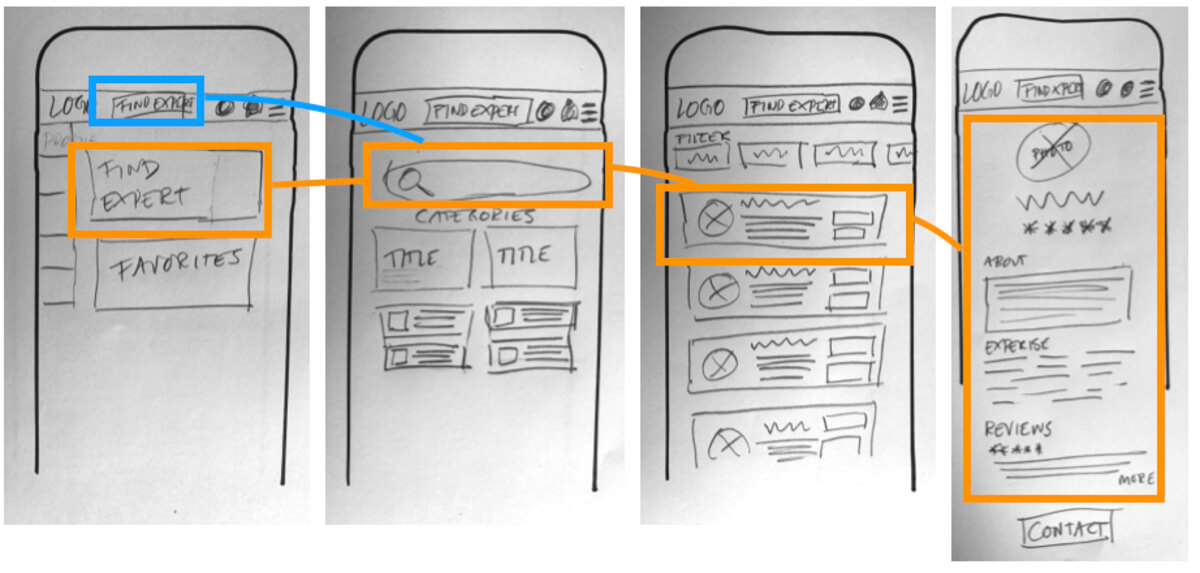 LOGO FIND EXPERT
PROFILE
FIND
EXPERT
FAVORITES
LOGO FIND EXPERT
CATEGORIES
TITLE TITLE
LOGO FIND EXPERT
FILTER
LOGO FIND EXPERT
PHOTO
ABOUT
EXPERISE
REVIEWS
MORE
CONTACT